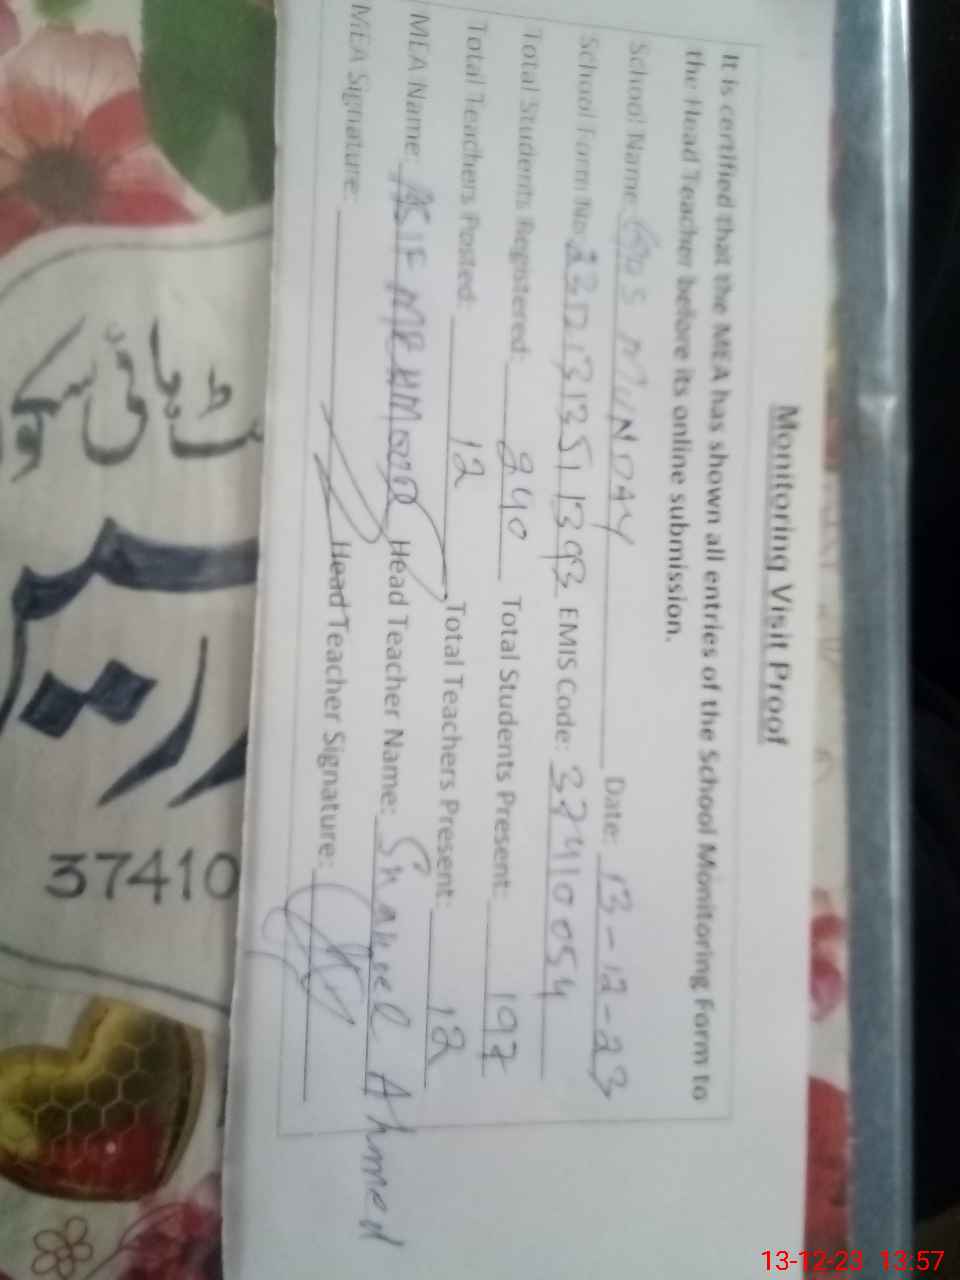 Monitoring Visit Proof
It is certified that the MEA has shown all entries of the School Monitoring Form to
the Head Teacher before its online submission.
School Name: MUNDAY Date: 13-12-23
School Form No: EMIS Code: 37410054
Total Students Registered: 240 Total Students Present: 197
Total Teachers Posted: 12 Total Teachers Present: 12
MEA Name: ASIF MEHMOOD Head Teacher Name: Shakeel Ahmed
MEA Signature: Head Teacher Signature:
37410
13-12-23 13:57